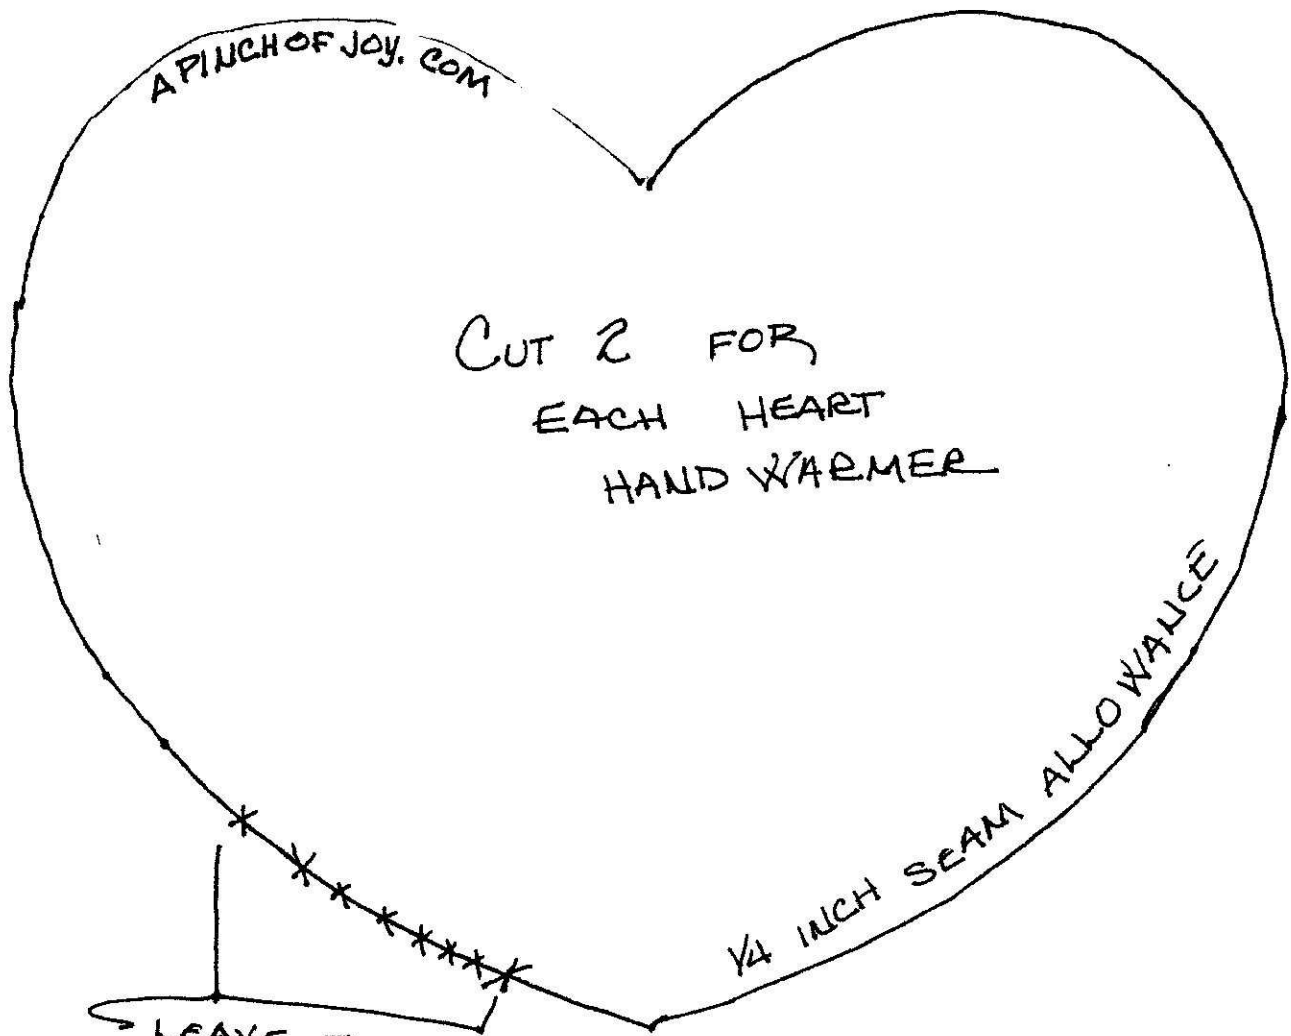 APINCHOFJOY.COM
CUT 2 FOR
EACH HEART
HAND WARMER
1/4 INCH SEAM ALLOWANCE
LEAVE